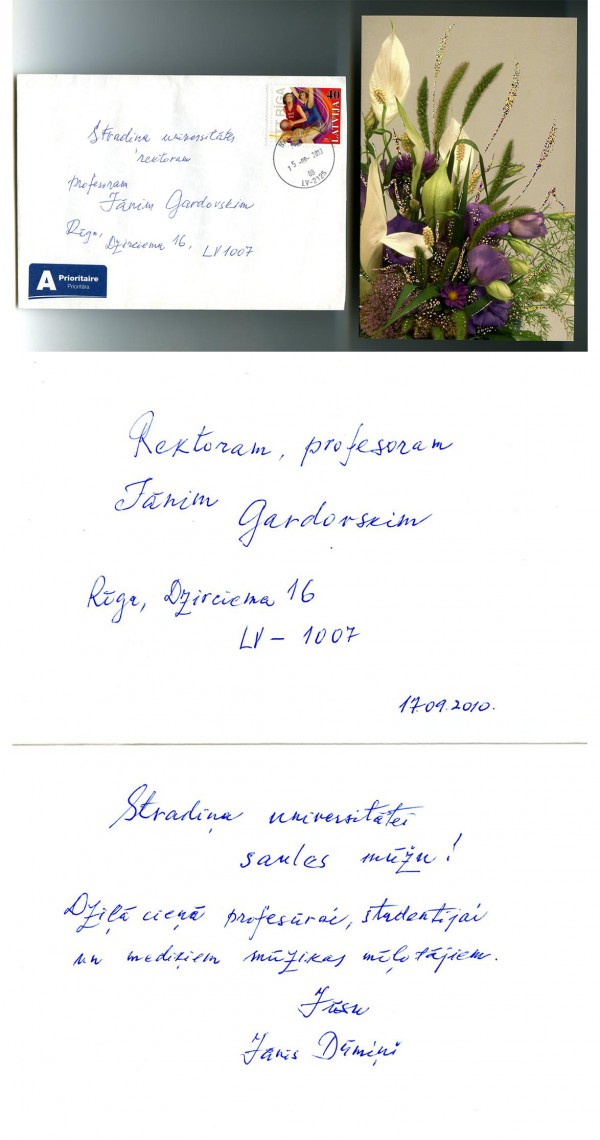 Stradiņa universitātes
rektoram
profesoram
Jānim Gardovskim
Rīga,
Dzirciema 16,
LV 1007
A Prioritaire
Prioritāra
RĪGA
40
LATVIJA
LV-2125
Rektoram, profesoram
Jānim
Gardovskim
Rīga, Dzirciema 16
LV – 1007
17.09.2010.
Stradiņa universitātei
saules mūžu!
Dziļā cieņā profesūrai, studentijai
un mediķiem mūzikas mīļotājiem.
Jūsu
Jānis Dūmiņš